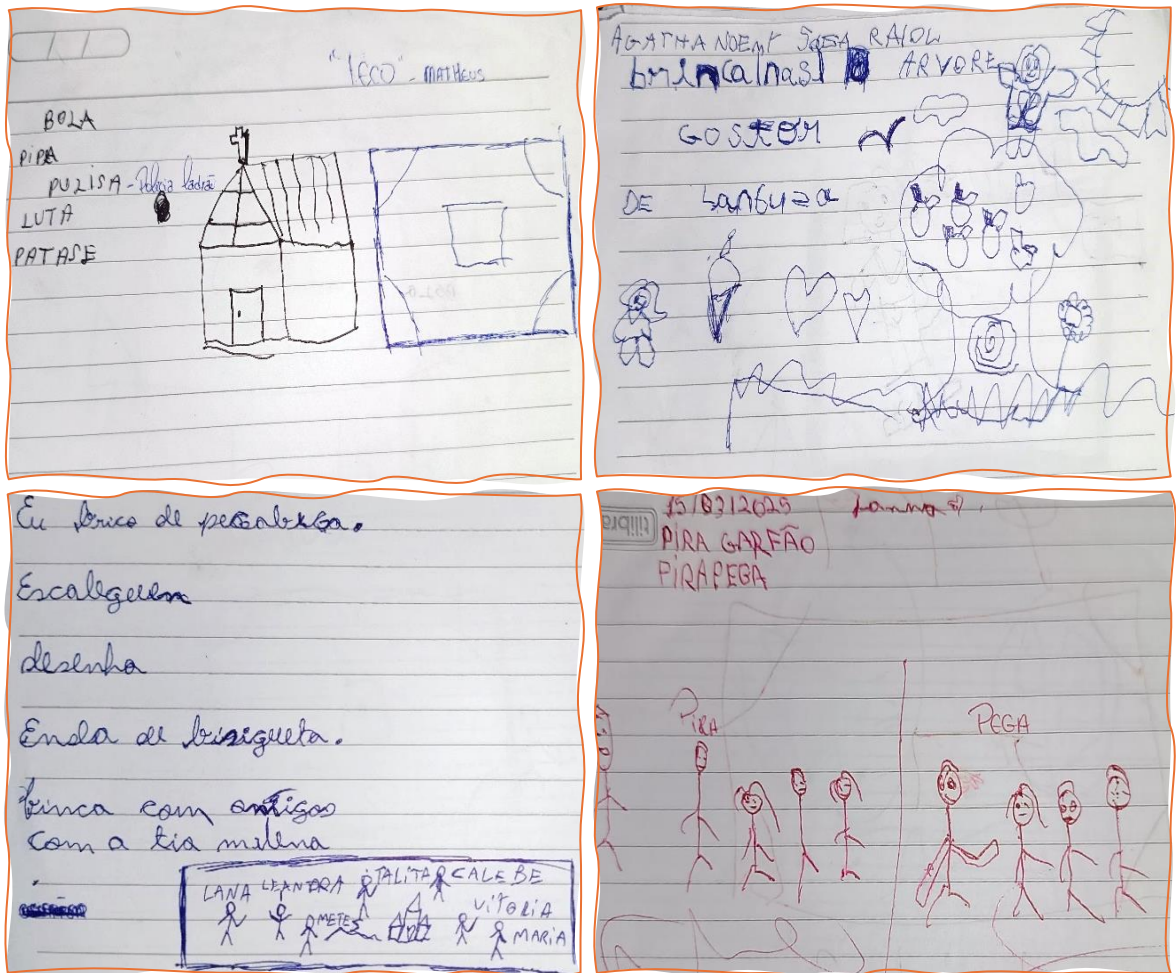 "TECO" - MATHEUS
BOLA
PIPA
PULISA - Polícia ladrão
LUTA
PATASE
AGATHA NOEMY
ARVORE
GOSTOM
DE
Eu brico de pegabega.
Escaleguem
desenha
Enda de bisigueta.
brinca com amtigos
com a tia melena
LANA LEANDRA TALITA CALEBE
METES VITORIA
MARIA
15/03/2025
PIRA GARFÃO
PIRAPEGA
PIRA PEGA
tilibra